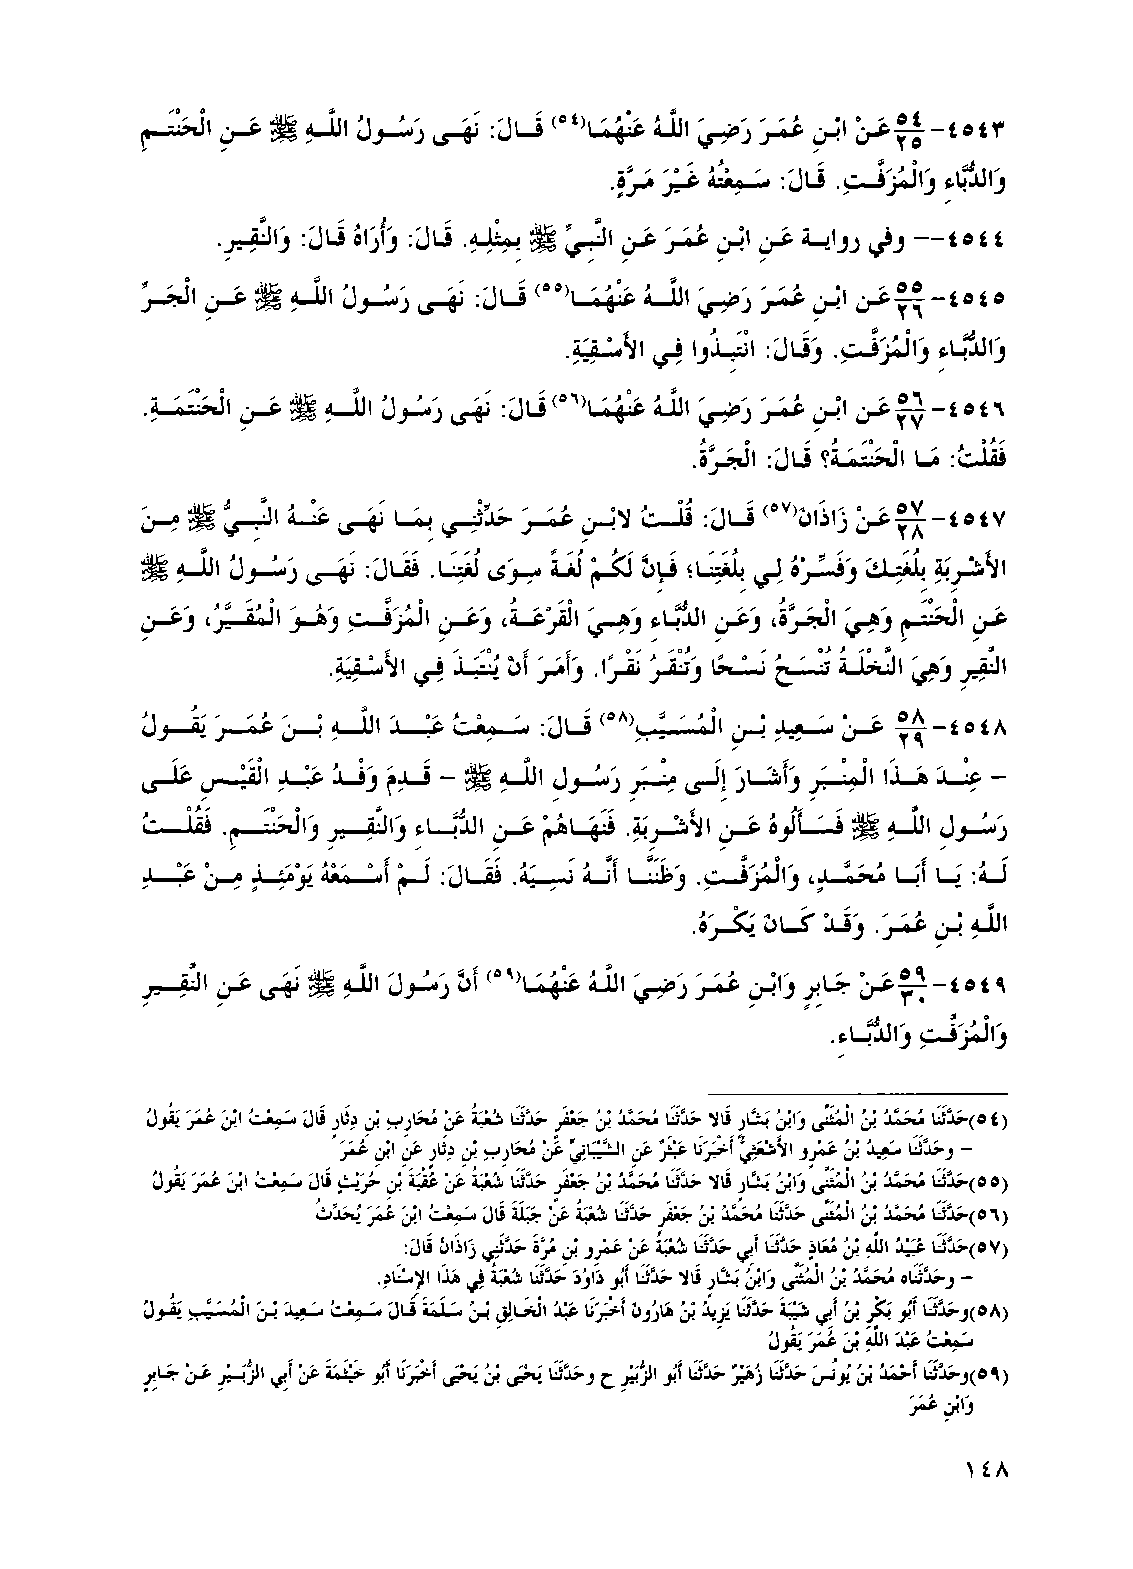 ٤٥٤٣- ٥٤/٢٥ عَنْ ابْنِ عُمَرَ رَضِيَ اللَّهُ عَنْهُمَا(٥٤) قَالَ: نَهَى رَسُولُ اللَّهِ ﷺ عَنِ الْحَنْتَمِ
وَالدُّبَّاءِ وَالْمُزَفَّتِ. قَالَ: سَمِعْتُهُ غَيْرَ مَرَّةٍ.
٤٥٤٤-- وفي رواية عَنِ ابْنِ عُمَرَ عَنِ النَّبِيِّ ﷺ بِمِثْلِهِ. قَالَ: وَأُرَاهُ قَالَ: وَالنَّقِيرِ.
٤٥٤٥- ٥٥/٢٦ عَنِ ابْنِ عُمَرَ رَضِيَ اللَّهُ عَنْهُمَا(٥٥) قَالَ: نَهَى رَسُولُ اللَّهِ ﷺ عَنِ الْجَرِّ
وَالدُّبَّاءِ وَالْمُزَفَّتِ. وَقَالَ: انْتَبِذُوا فِي الأَسْقِيَةِ.
٤٥٤٦- ٥٦/٢٧ عَنِ ابْنِ عُمَرَ رَضِيَ اللَّهُ عَنْهُمَا(٥٦) قَالَ: نَهَى رَسُولُ اللَّهِ ﷺ عَنِ الْحَنْتَمَةِ.
فَقُلْتُ: مَا الْحَنْتَمَةُ؟ قَالَ: الْجَرَّةُ.
٤٥٤٧- ٥٧/٢٨ عَنْ زَاذَانَ(٥٧) قَالَ: قُلْتُ لابْنِ عُمَرَ حَدِّثْنِي بِمَا نَهَى عَنْهُ النَّبِيُّ ﷺ مِنَ
الأَشْرِبَةِ بِلُغَتِكَ وَفَسِّرْهُ لِي بِلُغَتِنَا؛ فَإِنَّ لَكُمْ لُغَةً سِوَى لُغَتِنَا. فَقَالَ: نَهَى رَسُولُ اللَّهِ ﷺ
عَنِ الْحَنْتَمِ وَهِيَ الْجَرَّةُ، وَعَنِ الدُّبَّاءِ وَهِيَ الْقَرْعَةُ، وَعَنِ الْمُزَفَّتِ وَهُوَ الْمُقَيَّرُ، وَعَنِ
النَّقِيرِ وَهِيَ النَّخْلَةُ تُنْسَحُ نَسْحًا وَتُنْقَرُ نَقْرًا. وَأَمَرَ أَنْ يُنْتَبَذَ فِي الأَسْقِيَةِ.
٤٥٤٨- ٥٨/٢٩ عَنْ سَعِيدِ بْنِ الْمُسَيَّبِ(٥٨) قَالَ: سَمِعْتُ عَبْدَ اللَّهِ بْنَ عُمَرَ يَقُولُ
– عِنْدَ هَذَا الْمِنْبَرِ وَأَشَارَ إِلَى مِنْبَرِ رَسُولِ اللَّهِ ﷺ – قَدِمَ وَفْدُ عَبْدِ الْقَيْسِ عَلَى
رَسُولِ اللَّهِ ﷺ فَسَأَلُوهُ عَنِ الأَشْرِبَةِ. فَنَهَاهُمْ عَنِ الدُّبَّاءِ وَالنَّقِيرِ وَالْحَنْتَمِ. فَقُلْتُ
لَهُ: يَا أَبَا مُحَمَّدٍ، وَالْمُزَفَّتِ. وَظَنَنَّا أَنَّهُ نَسِيَهُ. فَقَالَ: لَمْ أَسْمَعْهُ يَوْمَئِذٍ مِنْ عَبْدِ
اللَّهِ بْنِ عُمَرَ. وَقَدْ كَانَ يَكْرَهُ.
٤٥٤٩- ٥٩/٣٠ عَنْ جَابِرٍ وَابْنِ عُمَرَ رَضِيَ اللَّهُ عَنْهُمَا(٥٩) أَنَّ رَسُولَ اللَّهِ ﷺ نَهَى عَنِ النَّقِيرِ
وَالْمُزَفَّتِ وَالدُّبَّاءِ.
(٥٤)حَدَّثَنَا مُحَمَّدُ بْنُ الْمُثَنَّى وَابْنُ بَشَّارٍ قَالا حَدَّثَنَا مُحَمَّدُ بْنُ جَعْفَرٍ حَدَّثَنَا شُعْبَةُ عَنْ مُحَارِبِ بْنِ دِثَارٍ قَالَ سَمِعْتُ ابْنَ عُمَرَ يَقُولُ
– وحَدَّثَنَا سَعِيدُ بْنُ عَمْرٍو الأَشْعَثِيُّ أَخْبَرَنَا عَبْثَرٌ عَنِ الشَّيْبَانِيِّ عَنْ مُحَارِبِ بْنِ دِثَارٍ عَنِ ابْنِ عُمَرَ
(٥٥)حَدَّثَنَا مُحَمَّدُ بْنُ الْمُثَنَّى وَابْنُ بَشَّارٍ قَالا حَدَّثَنَا مُحَمَّدُ بْنُ جَعْفَرٍ حَدَّثَنَا شُعْبَةُ عَنْ عُقْبَةَ بْنِ حُرَيْثٍ قَالَ سَمِعْتُ ابْنَ عُمَرَ يَقُولُ
(٥٦)حَدَّثَنَا مُحَمَّدُ بْنُ الْمُثَنَّى حَدَّثَنَا مُحَمَّدُ بْنُ جَعْفَرٍ حَدَّثَنَا شُعْبَةُ عَنْ جَبَلَةَ قَالَ سَمِعْتُ ابْنَ عُمَرَ يُحَدِّثُ
(٥٧)حَدَّثَنَا عُبَيْدُ اللَّهِ بْنُ مُعَاذٍ حَدَّثَنَا أَبِي حَدَّثَنَا شُعْبَةُ عَنْ عَمْرِو بْنِ مُرَّةَ حَدَّثَنِي زَاذَانُ قَالَ:
– وحَدَّثَنَاه مُحَمَّدُ بْنُ الْمُثَنَّى وَابْنُ بَشَّارٍ قَالا حَدَّثَنَا أَبُو دَاوُدَ حَدَّثَنَا شُعْبَةُ فِي هَذَا الإِسْنَادِ.
(٥٨)وحَدَّثَنَا أَبُو بَكْرِ بْنُ أَبِي شَيْبَةَ حَدَّثَنَا يَزِيدُ بْنُ هَارُونَ أَخْبَرَنَا عَبْدُ الْخَالِقِ بْنُ سَلَمَةَ قَالَ سَمِعْتُ سَعِيدَ بْنَ الْمُسَيَّبِ يَقُولُ
سَمِعْتُ عَبْدَ اللَّهِ بْنَ عُمَرَ يَقُولُ
(٥٩)وحَدَّثَنَا أَحْمَدُ بْنُ يُونُسَ حَدَّثَنَا زُهَيْرٌ حَدَّثَنَا أَبُو الزُّبَيْرِ ح وحَدَّثَنَا يَحْيَى بْنُ يَحْيَى أَخْبَرَنَا أَبُو خَيْثَمَةَ عَنْ أَبِي الزُّبَيْرِ عَنْ جَابِرٍ
وَابْنِ عُمَرَ
١٤٨